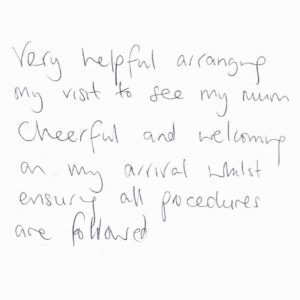 Very helpful arranging
my visit to see my mum
Cheerful and welcoming
on my arrival whilst
ensuring all procedures
are followed